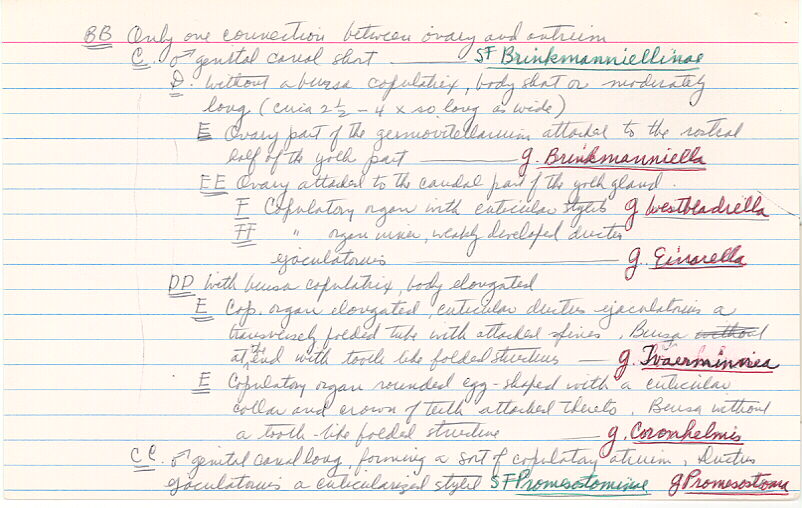 BB Only one connection between ovary and antrium
C. ♂ genital canal short — SF Brinkmanniellinae
D. without a bursa copulatrix, body short or moderately
long (circa 2½ - 4 x so long as wide)
E Ovary part of the germovitellarium attached to the rostral
half of the yolk part — g. Brinkmanniella
EE Ovary attached to the caudal part of the yolk gland.
F Copulatory organ with cuticular stylets g Westbladiella
FF " organ unarmed, weakly developed ductus
ejaculatorius — g. Einarella
DD with bursa copulatrix, body elongated
E Cop. organ elongated, cuticular ductus ejaculatorius a
transversely folded tube with attached spines. Bursa without
at the end with tooth like folded structures — g. Tvaerminnea
E Copulatory organ rounded egg-shaped with a cuticular
collar and crown of teeth attached thereto. Bursa without
a tooth-like folded structure — g. Coronhelmis
CC. ♂ genital canal long, forming a sort of copulatory atrium. Ductus
ejaculatorius a cuticularized stylet SF Promesostominae g Promesostoma